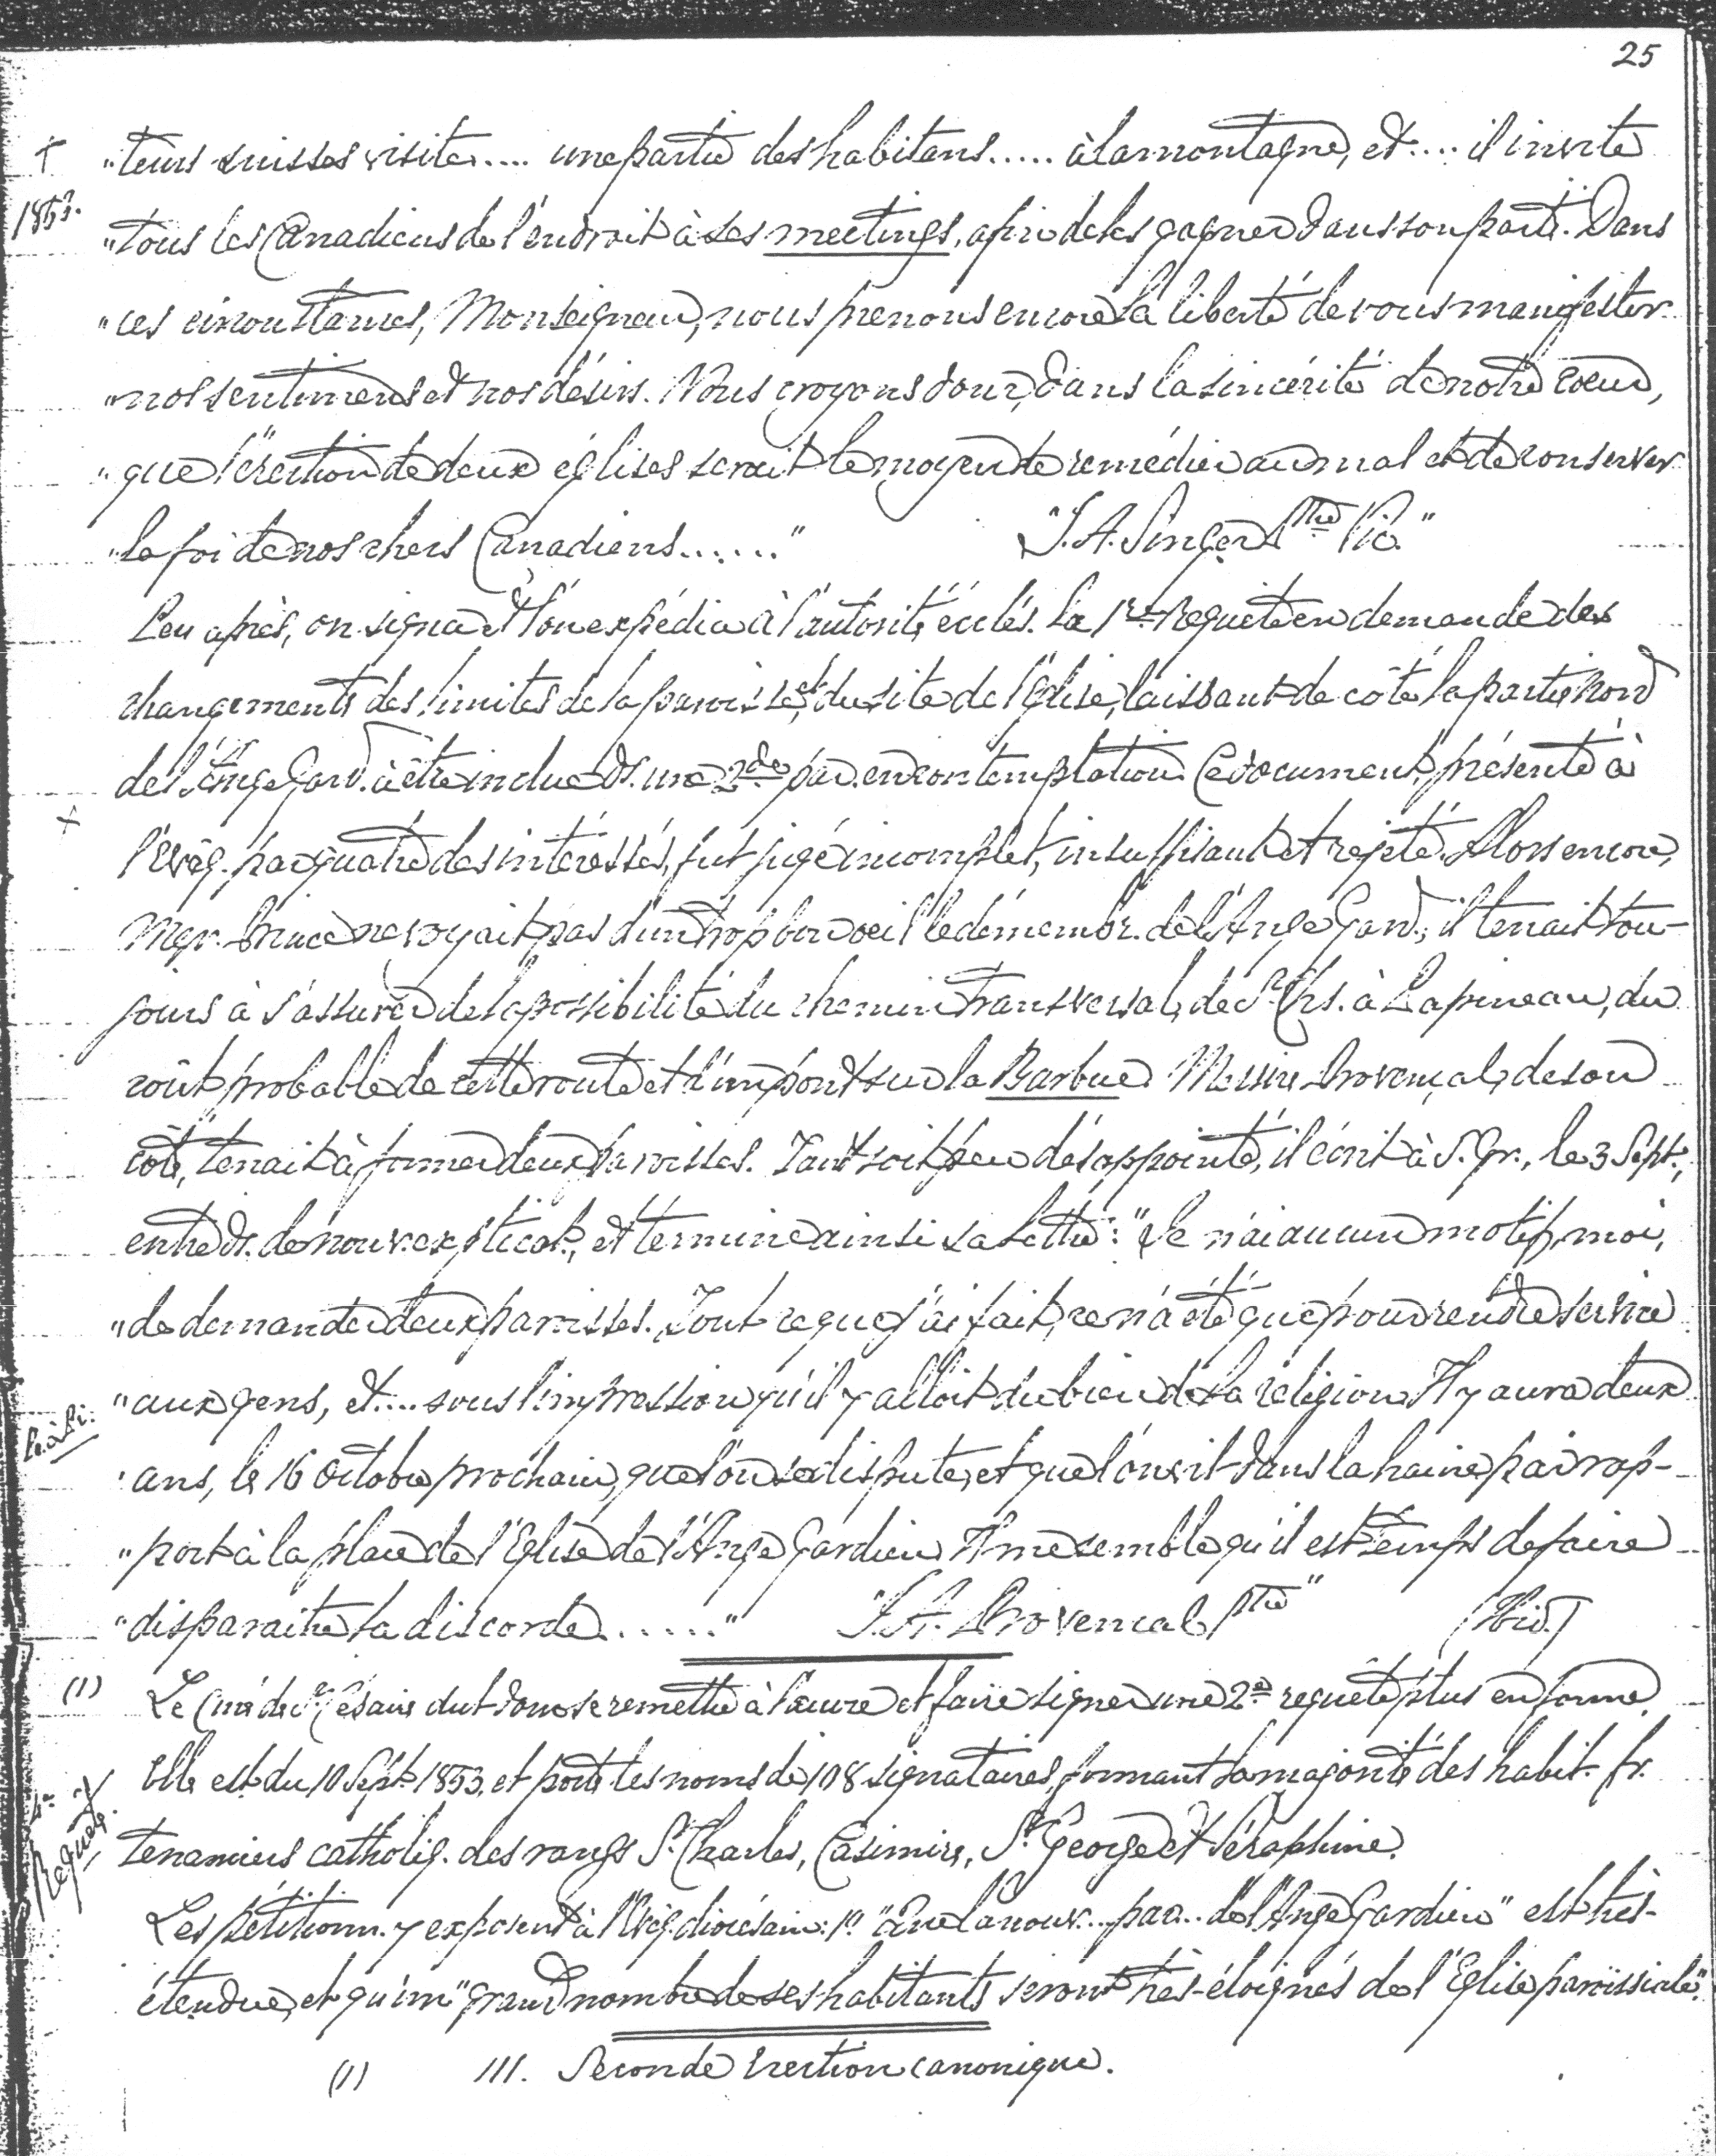 25
"teurs suisses visite.... une partie des habitans..... à la montagne, et.... il invite
+
1853.
"tous les Canadiens de l'endroit à ses meetings, afin de les gagner dans son parti. Dans
"ces circonstances, Monseigneur, nous prenons encore la liberté de vous manifester
"nos sentimens et nos désirs. Nous croyons donc, dans la sincérité de notre coeur,
"que l'érection de deux églises serait le moyen de remédier au mal et de conserver
"la foi de nos chers Canadiens......" "J. A. Singer Ptre Vic."
Peu après, on signa et l'on expédia à l'autorité éccles. la 1re Requête en demande des
changements des limites de la paroisse, et du site de l'Église, laissant de côté la partie Nord
de l'Ange Gard. à être inclue ds. une 2de par. en contemplation. Ce document, présenté à
+
l'Évêq. par quatre des intéressés, fut jugé incomplet, insuffisant et rejeté. Alors encore,
Mgr. Prince ne voyait pas d'un trop bon oeil le démembr. de l'Ange Gard.; il tenait tou-
jours à s'assurer de la possibilité du chemin transversal, de St Chs. à Papineau, du
coût probable de cette route et d'un pont sur la Barbue. Messire Provençal, de son
côté, tenait à former deux paroisses. Tant soit peu désappointé, il écrit à S. Gr., le 3 Sept.,
entre ds. de nouv. explicat., et termine ainsi sa lettre: "Je n'ai aucun motif, moi,
"de demander deux paroisses. Tout ce que j'ai fait, ce n'a été que pour rendre service
"aux gens, et.... sous l'impression qu'il y alloit du bien de la religion. Il y aura deux
"ans, le 16 Octobre prochain, que l'on se dispute, et que l'on vit dans la haine par rap-
"port à la place de l'Eglise de l'Ange Gardien. Il me semble qu'il est temps de faire
"disparaitre la discorde......" J. A. Provencal Ptre" (Ibid.)
(1) Le Curé de St Césaire dut donc se remettre à l'oeuvre et faire signer une 2e requête plus en forme.
Elle est du 10 Sept. 1853, et porte les noms de 108 signataires, formant la majorité des habit. fr.
+
Requête.
tenanciers catholiq. des rangs St Charles, Casimire, St George et Séraphine.
Les pétitionn. y exposent à l'Évêq. diocésain: 1° "Que la nouv... par... de l'Ange Gardien" est très-
étendue, et qu'un "grand nombre de ses habitants seront très-éloignés de l'Eglise paroissiale".
(1) III. Seconde Erection canonique.